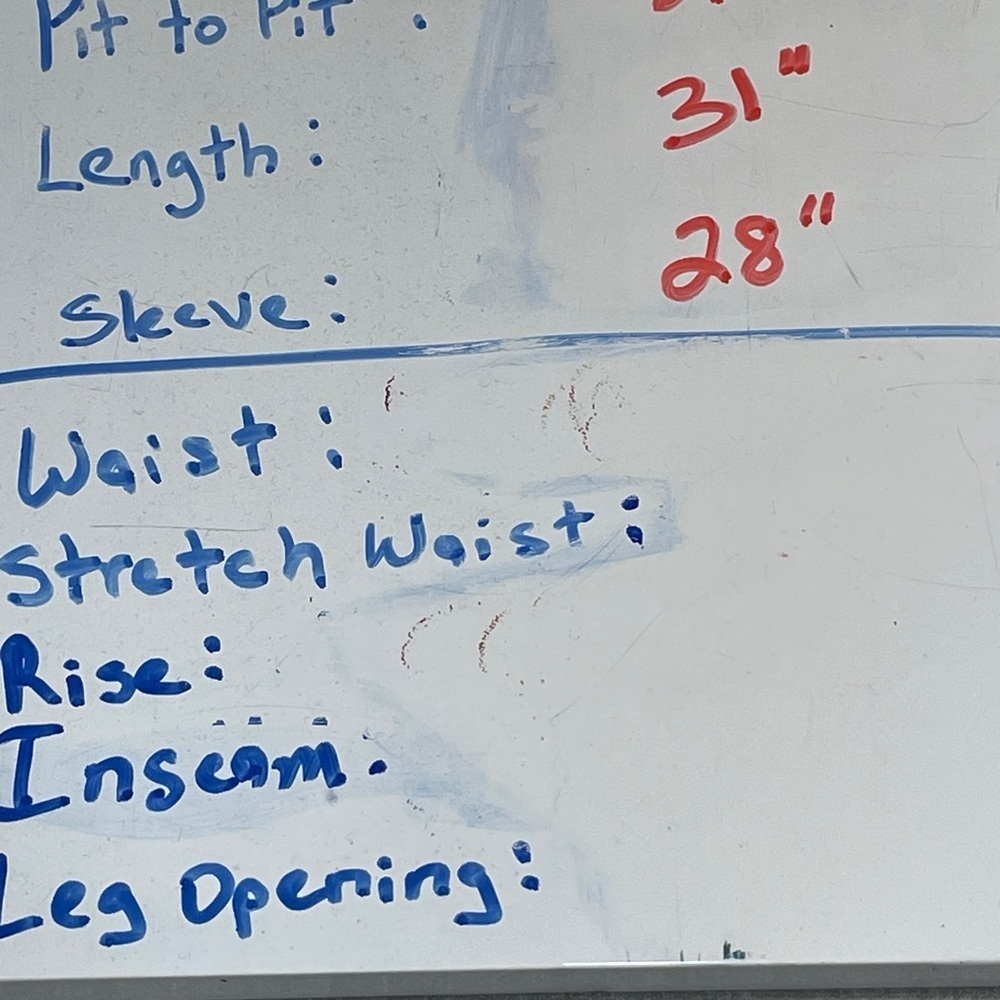 Pit to Pit :
Length : 31"
Sleeve : 28"
Waist :
Stretch Waist :
Rise :
Inseam .
Leg Opening :